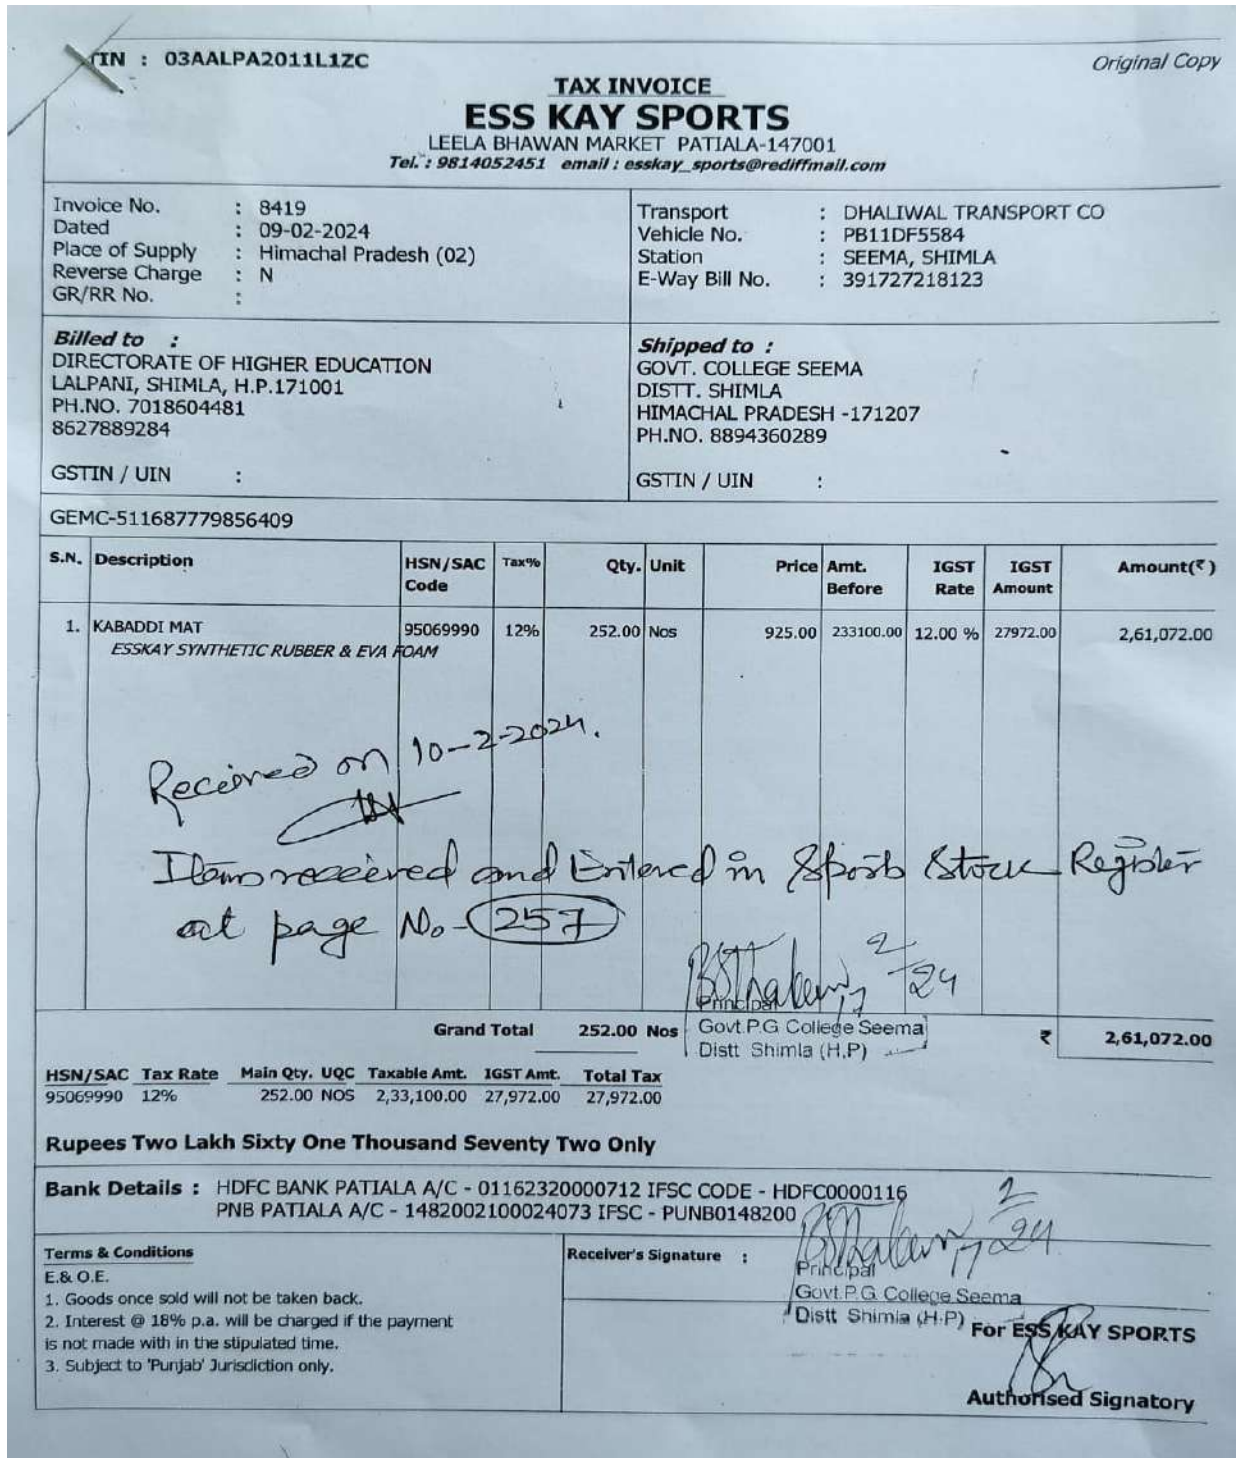 TIN : 03AALPA2011L1ZC
Original Copy
TAX INVOICE
ESS KAY SPORTS
LEELA BHAWAN MARKET PATIALA-147001
Tel. : 9814052451 email : esskay_sports@rediffmail.com
Invoice No. : 8419
Dated : 09-02-2024
Place of Supply : Himachal Pradesh (02)
Reverse Charge : N
GR/RR No. :
Transport : DHALIWAL TRANSPORT CO
Vehicle No. : PB11DF5584
Station : SEEMA, SHIMLA
E-Way Bill No. : 391727218123
Billed to :
DIRECTORATE OF HIGHER EDUCATION
LALPANI, SHIMLA, H.P.171001
PH.NO. 7018604481
8627889284
GSTIN / UIN :
Shipped to :
GOVT. COLLEGE SEEMA
DISTT. SHIMLA
HIMACHAL PRADESH -171207
PH.NO. 8894360289
GSTIN / UIN :
GEMC-511687779856409
S.N. Description HSN/SAC Code Tax% Qty. Unit Price Amt. Before IGST Rate IGST Amount Amount(₹)
1. KABADDI MAT 95069990 12% 252.00 Nos 925.00 233100.00 12.00 % 27972.00 2,61,072.00
ESSKAY SYNTHETIC RUBBER & EVA FOAM
Received on 10-2-2024.
Items received and Entered in Sports Stock Register
at page No-257
2/24
17
Principal
Govt.P.G College Seema
Distt Shimla (H.P)
Grand Total 252.00 Nos ₹ 2,61,072.00
HSN/SAC Tax Rate Main Qty. UQC Taxable Amt. IGST Amt. Total Tax
95069990 12% 252.00 NOS 2,33,100.00 27,972.00 27,972.00
Rupees Two Lakh Sixty One Thousand Seventy Two Only
Bank Details : HDFC BANK PATIALA A/C - 01162320000712 IFSC CODE - HDFC0000116
PNB PATIALA A/C - 1482002100024073 IFSC - PUNB0148200
Terms & Conditions
E.& O.E.
1. Goods once sold will not be taken back.
2. Interest @ 18% p.a. will be charged if the payment
is not made with in the stipulated time.
3. Subject to 'Punjab' Jurisdiction only.
Receiver's Signature :
2/24
17
Principal
Govt.P.G. College Seema
Distt Shimla (H.P)
For ESS KAY SPORTS
Authorised Signatory